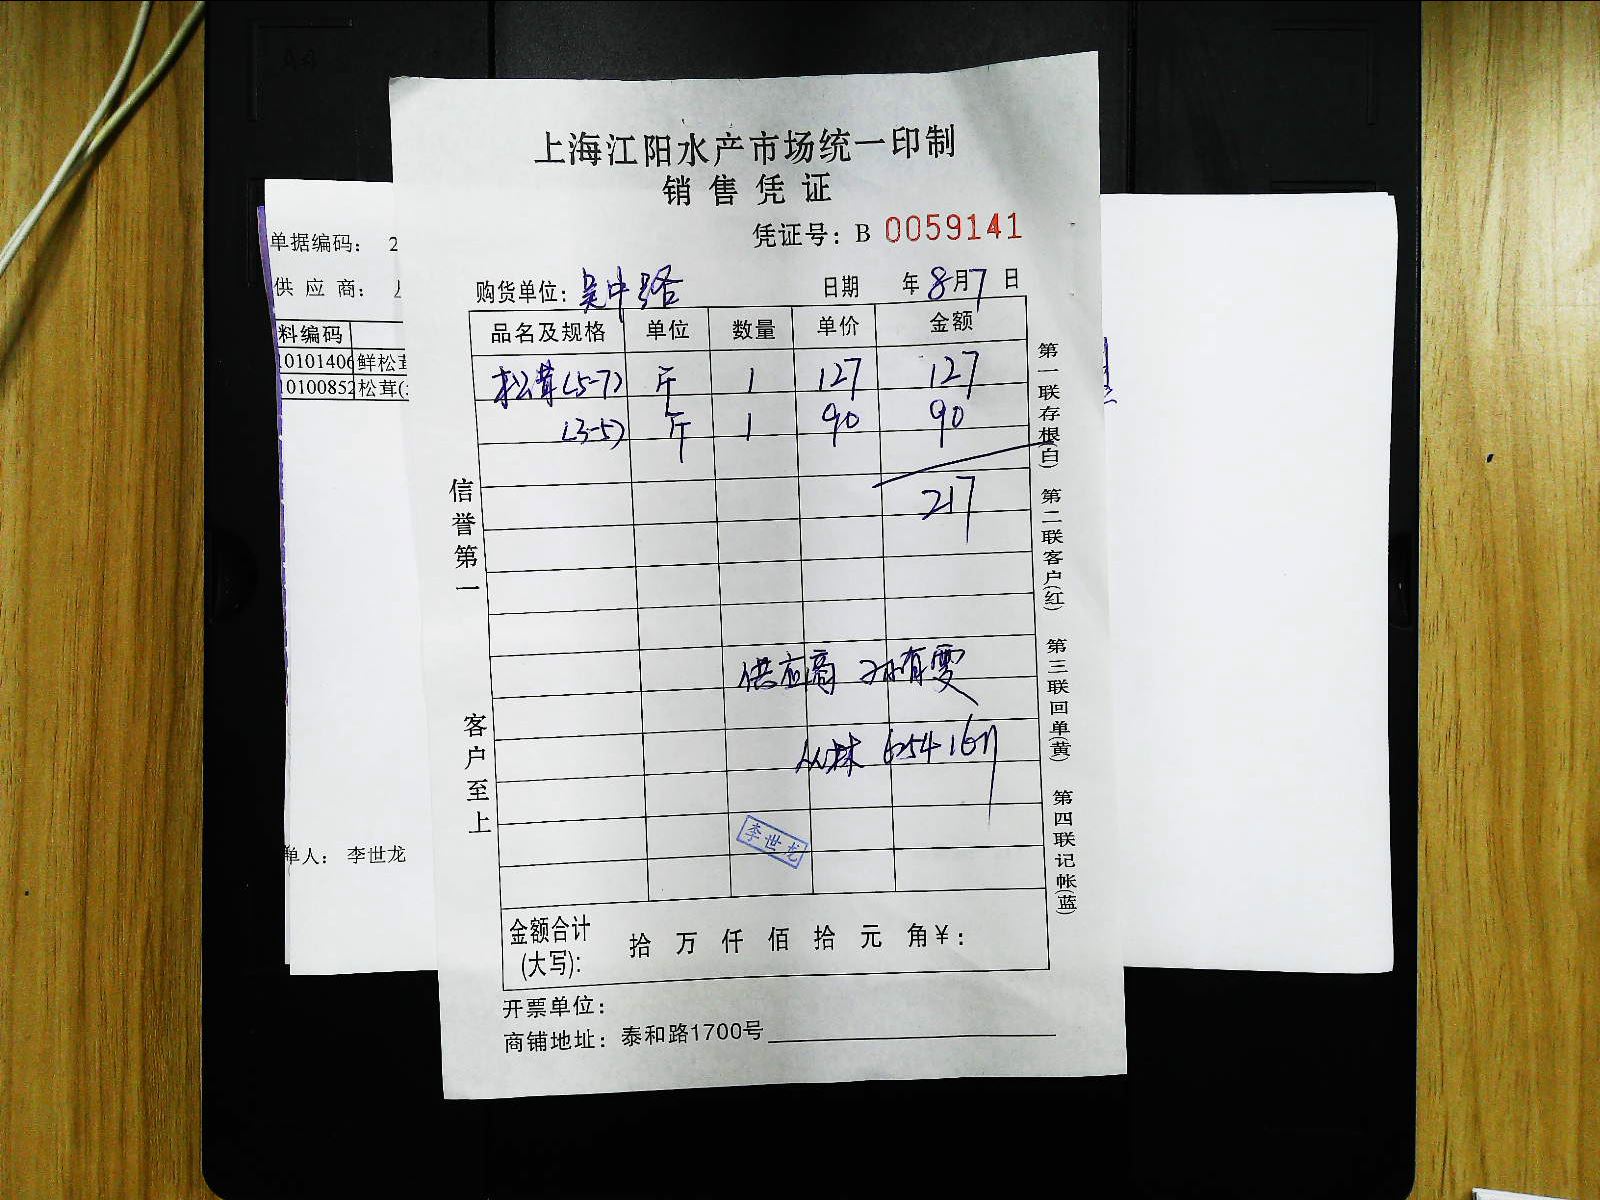 上海江阳水产市场统一印制
销售凭证
凭证号: B 0059141
购货单位: 吴中路 日期 年8月7日
品名及规格 单位 数量 单价 金额
松茸(5-7) 斤 1 127 127
(3-5) 斤 1 90 90
217
供应商 孙有雯
丛林 654167
李世龙
金额合计(大写): 拾 万 仟 佰 拾 元 角 ¥:
开票单位:
商铺地址: 泰和路1700号
信誉第一
客户至上
第一联存根(白) 第二联客户(红) 第三联回单(黄) 第四联记帐(蓝)
单据编码: 2
供应商:
料编码
10101406 鲜松茸
10100852 松茸(
单人: 李世龙